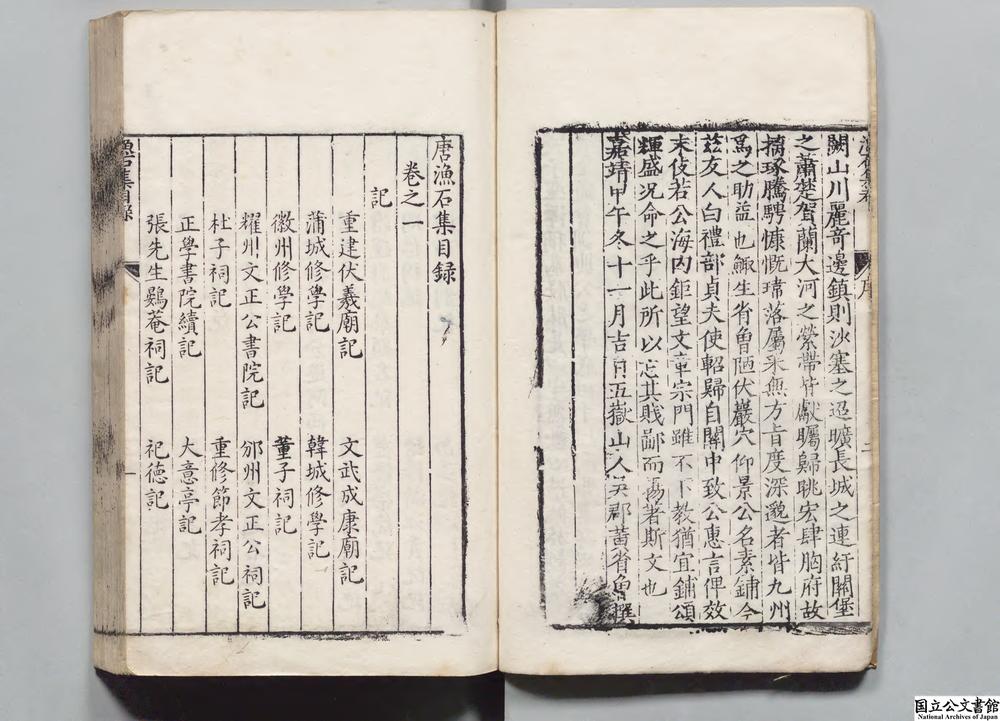 闕山川麗奇邊鎮則沙塞之迥曠長城之連紆關堡
之蕭楚賀蘭大河之縈帶皆獻矚歸眺宏肆胸府故
摛琢騰騁慷慨瑋落屬采無方旨度深邈者皆九州
為之助益也鯫生省魯陋伏巖穴仰景公名素鋪今
茲友人白禮部貞夫使軺歸自關中致公惠言俾效
末伎若公海內鉅望文章宗門雖不下教猶宜鋪頌
輝盛況命之乎此所以忘其賤鄙而揚者斯文也
嘉靖甲午冬十一月吉日五嶽山人吳郡黃省魯撰
序
二
唐漁石集目録
卷之一
記
重建伏羲廟記 文武成康廟記
蒲城修學記 韓城修學記
徽州修學記 董子祠記
耀州文正公書院記 邠州文正公祠記
杜子祠記 重修節孝祠記
正學書院續記 大意亭記
張先生鷃菴祠記 祀德記
漁石集目録
一
国立公文書館
National Archives of Japan